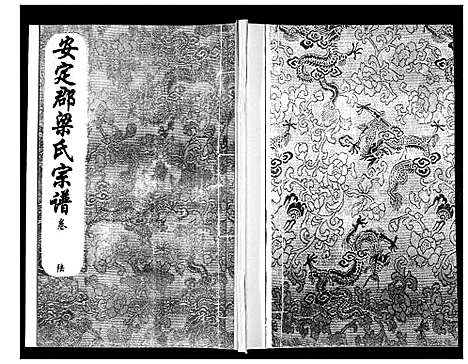 安定郡梁氏宗谱 卷 陆